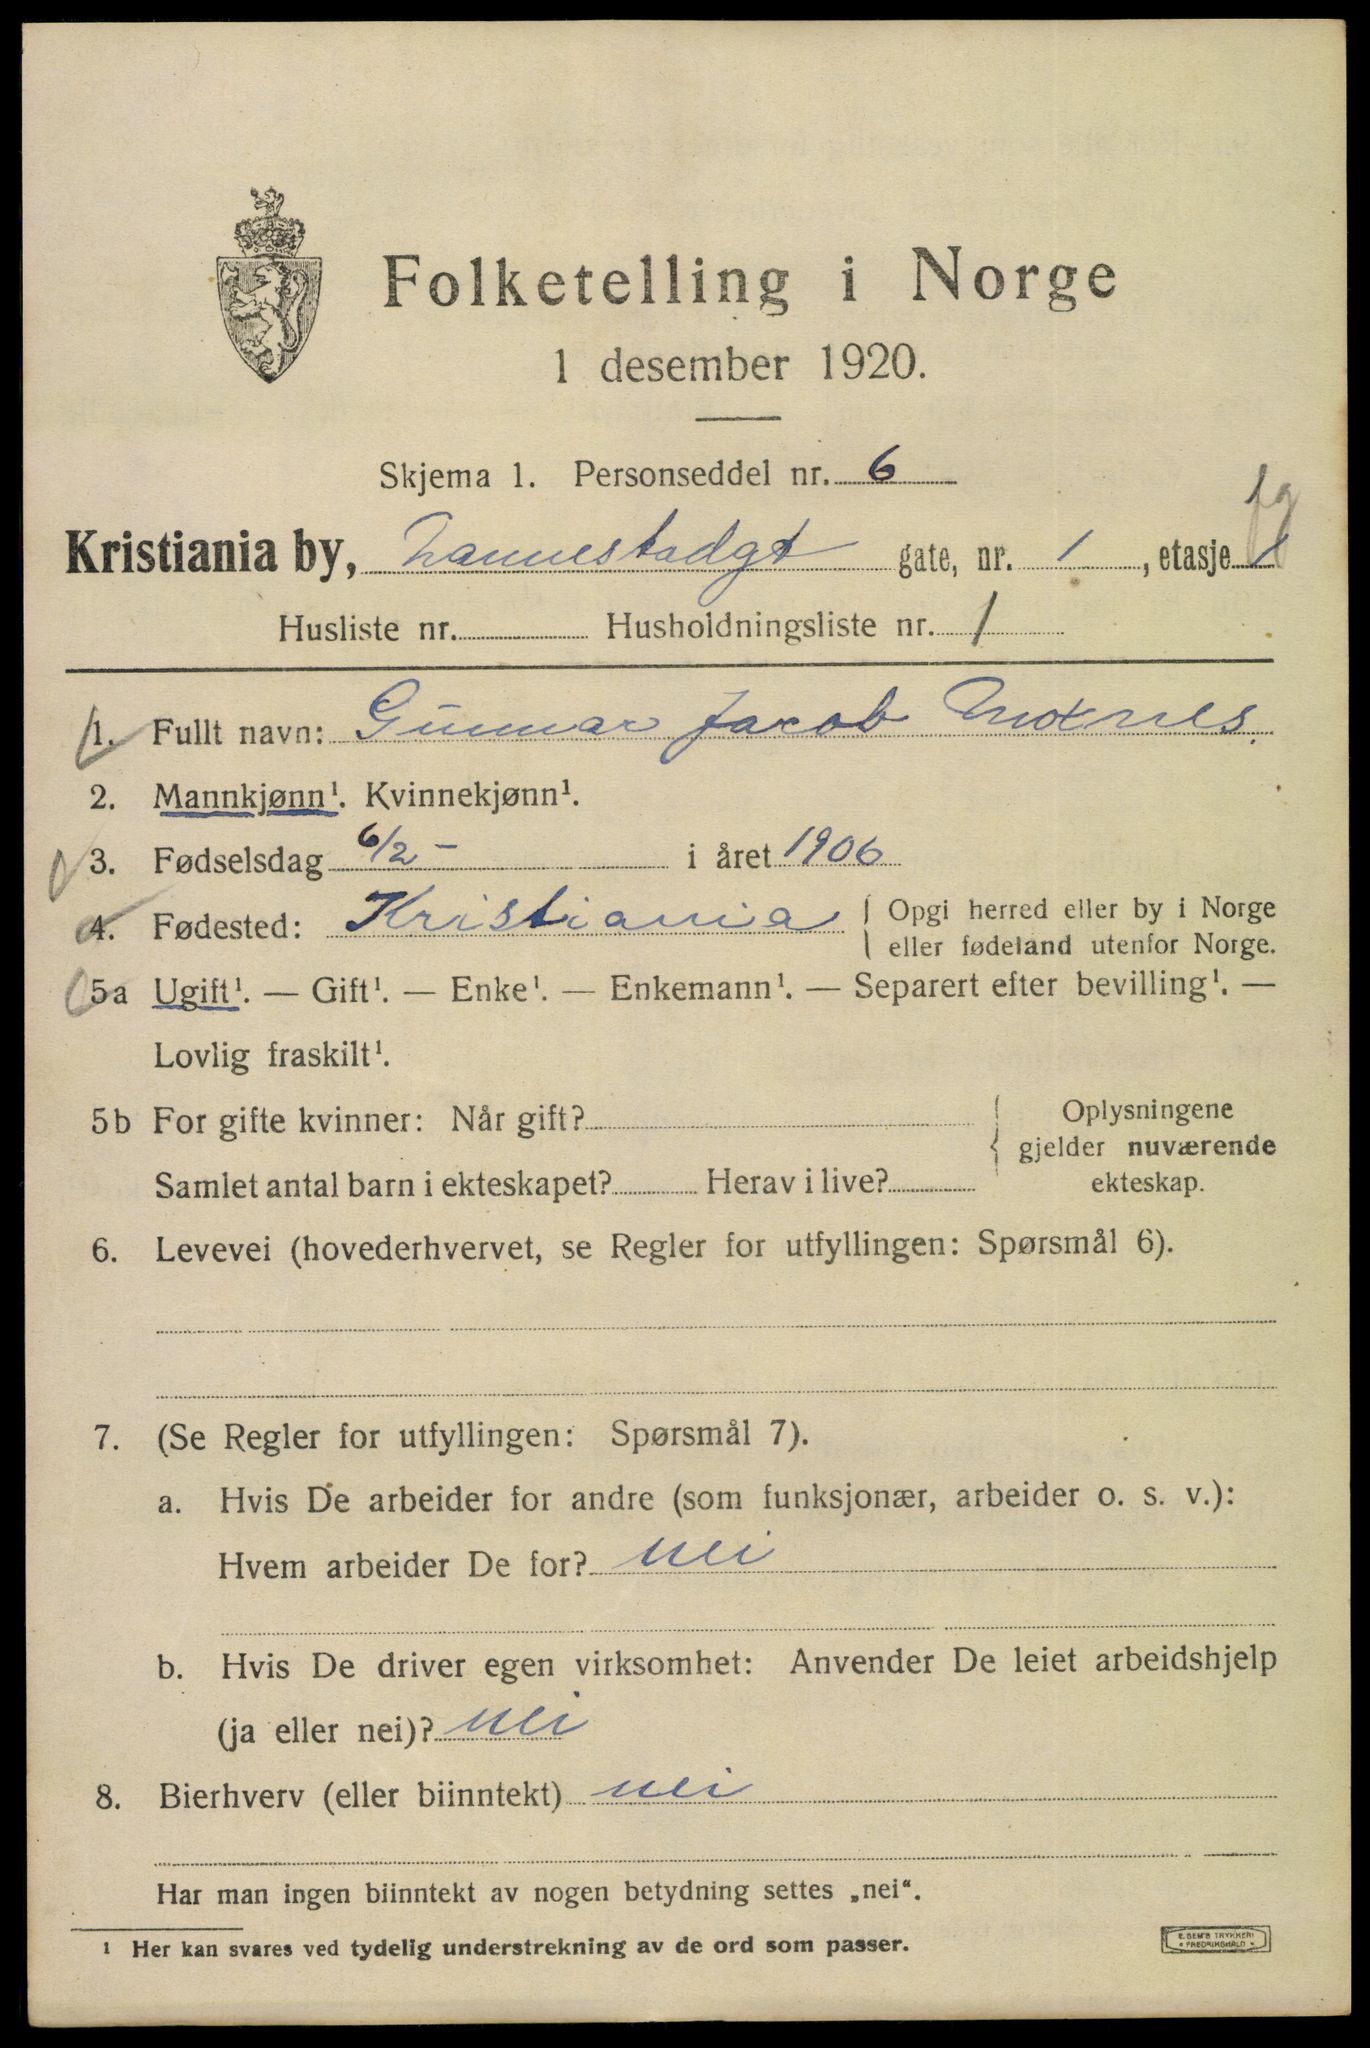 Folketelling i Norge
1 desember 1920.
Skjema 1. Personseddel nr. 6
Kristiania by, Lannestadgt gate, nr. 1, etasje 1
Husliste nr. Husholdningsliste nr. 1
1. Fullt navn: Gunnar Jacob
2. Mannkjønn¹. Kvinnekjønn¹.
3. Fødselsdag 6/2 - i året 1906
4. Fødested: Kristiania { Opgi herred eller by i Norge
eller fødeland utenfor Norge.
5a Ugift¹. — Gift¹. — Enke¹. — Enkemann¹. — Separert efter bevilling¹. —
Lovlig fraskilt¹.
5b For gifte kvinner: Når gift? { Oplysningene
gjelder nuværende
Samlet antal barn i ekteskapet? Herav i live? ekteskap.
6. Levevei (hovederhvervet, se Regler for utfyllingen: Spørsmål 6).
7. (Se Regler for utfyllingen: Spørsmål 7).
a. Hvis De arbeider for andre (som funksjonær, arbeider o. s. v.):
Hvem arbeider De for? nei
b. Hvis De driver egen virksomhet: Anvender De leiet arbeidshjelp
(ja eller nei)? nei
8. Bierhverv (eller biinntekt) nei
Har man ingen biinntekt av nogen betydning settes „nei“.
¹ Her kan svares ved tydelig understrekning av de ord som passer.
E. SEM'S TRYKKERI
• FREDRIKSHALD •